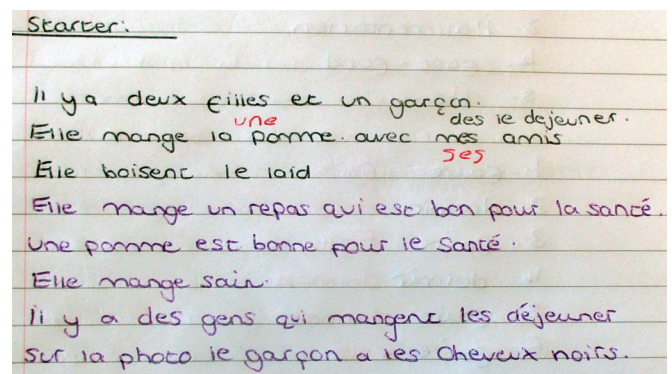 Starter:
Il y a deux filles et un garçon.
une des le dejeuner.
Elle mange la pomme. avec mes amis
ses
Elle boisent le laid
Elle mange un repas qui est bon pour la santé.
une pomme est bonne pour le santé.
Elle mange sain.
Il y a des gens qui mangent les déjeuner
sur la photo le garçon a les cheveux noirs.